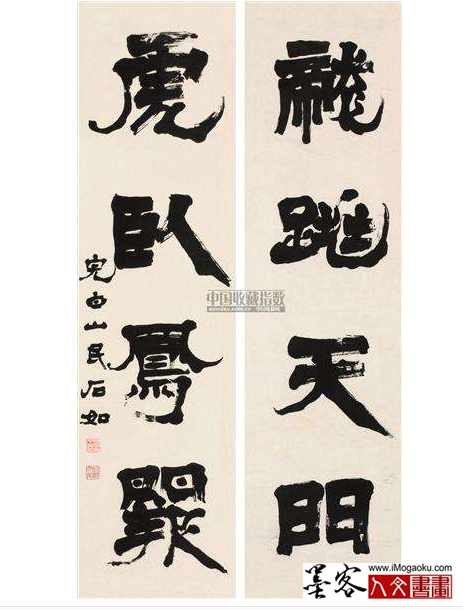 龍跳天門
虎臥鳳闕
完白山民石如
中国收藏指数
www.iMogaoku.com
墨客
人文書畫